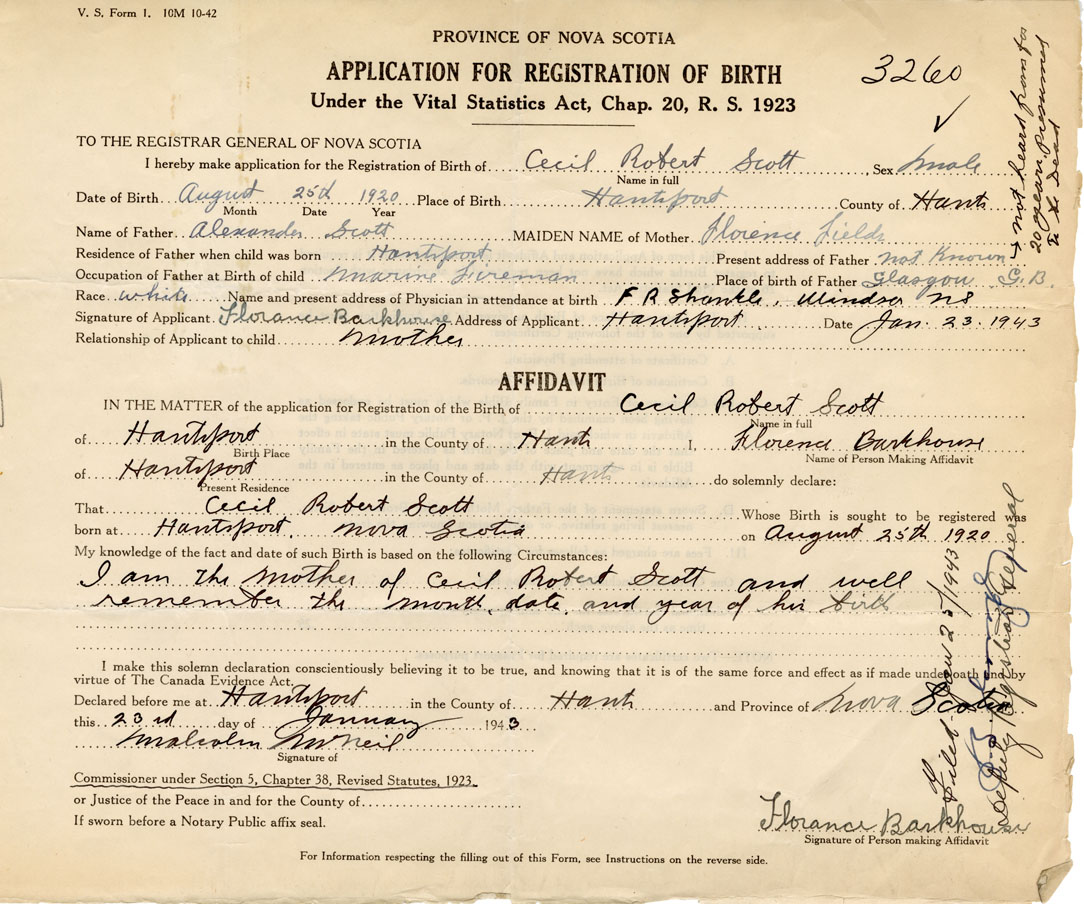 V. S. Form 1. 10M 10-42
PROVINCE OF NOVA SCOTIA
APPLICATION FOR REGISTRATION OF BIRTH
3260
Under the Vital Statistics Act, Chap. 20, R. S. 1923
TO THE REGISTRAR GENERAL OF NOVA SCOTIA
I hereby make application for the Registration of Birth of Cecil Robert Scott, Sex male
Name in full
Date of Birth August 25th 1920 Place of Birth Hantsport County of Hants
Month Date Year
Name of Father Alexander Scott MAIDEN NAME of Mother Florence Fields
Residence of Father when child was born Hantsport Present address of Father not Known
Occupation of Father at Birth of child Marine Fireman Place of birth of Father Glasgow G.B.
Race white Name and present address of Physician in attendance at birth F R Shankle, Windsor NS
Signature of Applicant Florance Barkhouse Address of Applicant Hantsport Date Jan. 23. 1943
Relationship of Applicant to child Mother
not heard from for
20 years presumed
to be Dead
AFFIDAVIT
IN THE MATTER of the application for Registration of the Birth of Cecil Robert Scott
Name in full
of Hantsport in the County of Hants I, Florence Barkhouse
Birth Place Name of Person Making Affidavit
of Hantsport in the County of Hants do solemnly declare:
Present Residence
That Cecil Robert Scott Whose Birth is sought to be registered was
born at Hantsport, Nova Scotia on August 25th 1920
My knowledge of the fact and date of such Birth is based on the following Circumstances:
I am the Mother of Cecil Robert Scott and well
remember the month, date, and year of his birth
I make this solemn declaration conscientiously believing it to be true, and knowing that it is of the same force and effect as if made under oath and by
virtue of The Canada Evidence Act.
Declared before me at Hantsport in the County of Hants and Province of Nova Scotia
this 23rd day of January 1943
Malcolm McNeil
Signature of
Commissioner under Section 5, Chapter 38, Revised Statutes, 1923.
or Justice of the Peace in and for the County of
If sworn before a Notary Public affix seal.
Filed Jan 25/1943
Deputy Registrar General
Florance Barkhouse
Signature of Person making Affidavit
For Information respecting the filling out of this Form, see Instructions on the reverse side.